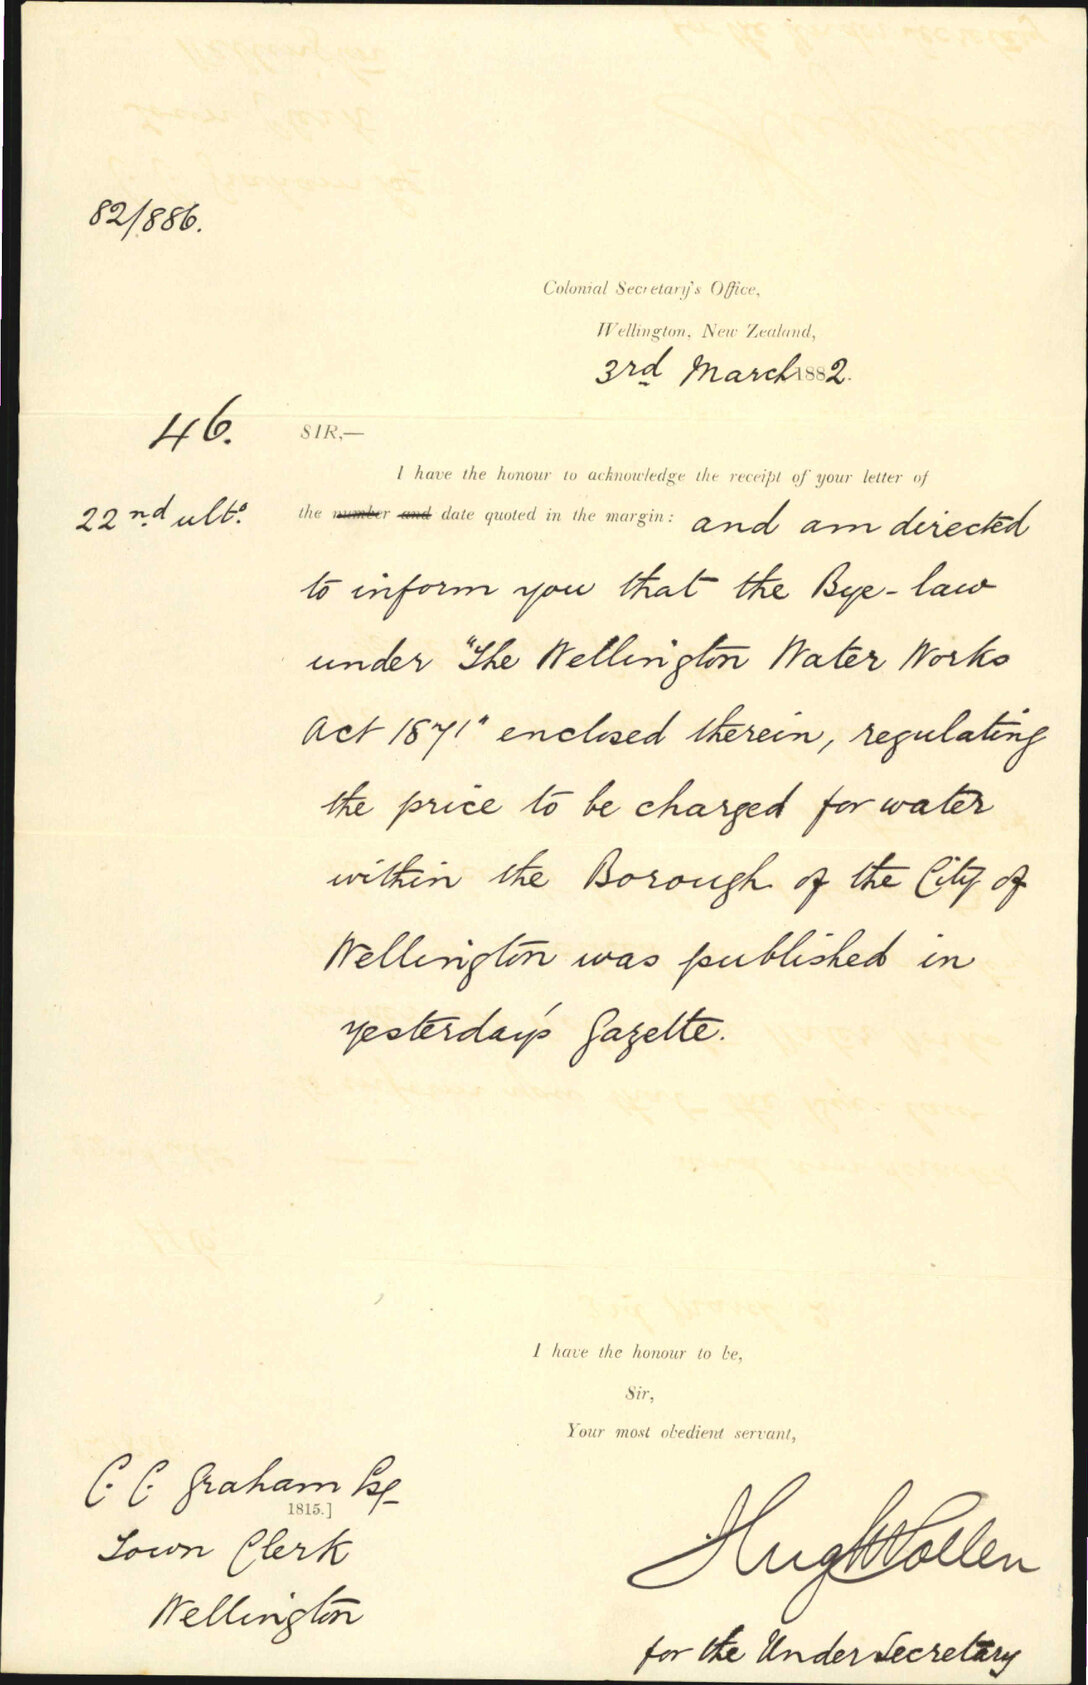 82/886.
Colonial Secretary's Office,
Wellington, New Zealand,
3rd March 1882.
46.
SIR,—
I have the honour to acknowledge the receipt of your letter of
22nd ulto.
the number and date quoted in the margin: and am directed
to inform you that the Bye-law
under "The Wellington Water Works
Act 1871" enclosed therein, regulating
the price to be charged for water
within the Borough of the City of
Wellington was published in
yesterday's Gazette.
I have the honour to be,
Sir,
Your most obedient servant,
C. C. Graham Esq
1815.]
Town Clerk
Wellington
Hugh Pollen
for the Under Secretary